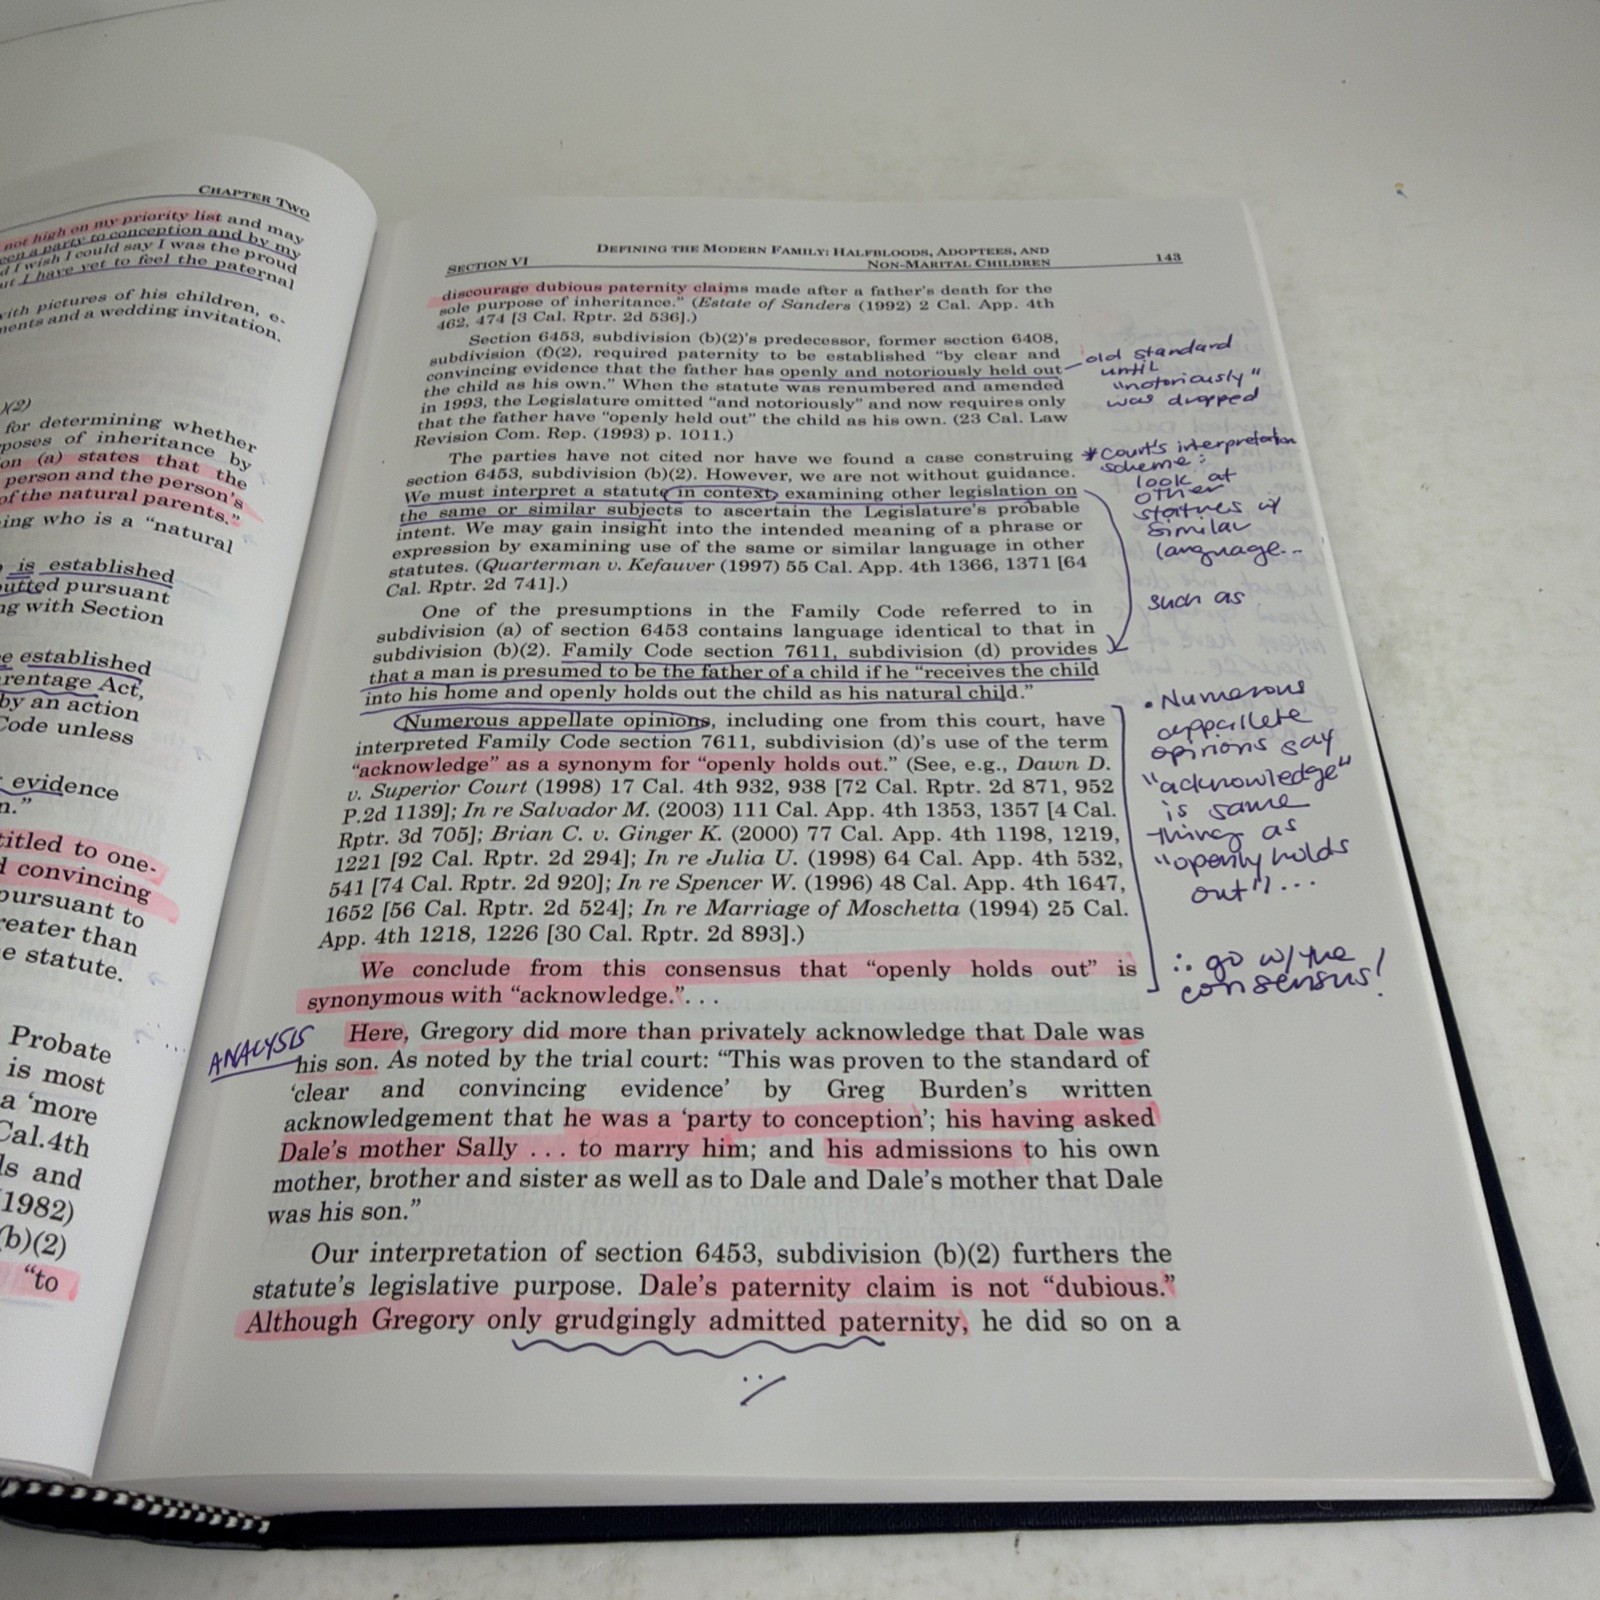 CHAPTER TWO
not high on my priority list and may
een a party to conception and by my
d I wish I could say I was the proud
ut I have yet to feel the paternal
with pictures of his children, e-
ments and a wedding invitation.
)(2)
for determining whether
poses of inheritance by
on (a) states that the
person and the person's
of the natural parents."
ing who is a "natural
is established
outted pursuant
ng with Section
e established
rentage Act,
by an action
Code unless
evidence
n."
titled to one-
d convincing
pursuant to
reater than
e statute.
Probate
is most
a 'more
Cal.4th
ls and
(1982)
(b)(2)
"to
SECTION VI
DEFINING THE MODERN FAMILY: HALFBLOODS, ADOPTEES, AND
NON-MARITAL CHILDREN
143
discourage dubious paternity claims made after a father's death for the
sole purpose of inheritance." (Estate of Sanders (1992) 2 Cal. App. 4th
462, 474 [3 Cal. Rptr. 2d 536].)
Section 6453, subdivision (b)(2)'s predecessor, former section 6408,
subdivision (f)(2), required paternity to be established "by clear and
convincing evidence that the father has openly and notoriously held out
the child as his own." When the statute was renumbered and amended
in 1993, the Legislature omitted "and notoriously" and now requires only
that the father have "openly held out" the child as his own. (23 Cal. Law
Revision Com. Rep. (1993) p. 1011.)
old standard
until
"notoriously"
was dropped
The parties have not cited nor have we found a case construing
section 6453, subdivision (b)(2). However, we are not without guidance.
We must interpret a statute in context, examining other legislation on
the same or similar subjects to ascertain the Legislature's probable
intent. We may gain insight into the intended meaning of a phrase or
expression by examining use of the same or similar language in other
statutes. (Quarterman v. Kefauver (1997) 55 Cal. App. 4th 1366, 1371 [64
Cal. Rptr. 2d 741].)
* Court's interpretation
scheme:
look at
other
statutes w/
similar
language...
such as
One of the presumptions in the Family Code referred to in
subdivision (a) of section 6453 contains language identical to that in
subdivision (b)(2). Family Code section 7611, subdivision (d) provides
that a man is presumed to be the father of a child if he "receives the child
into his home and openly holds out the child as his natural child."
Numerous appellate opinions, including one from this court, have
interpreted Family Code section 7611, subdivision (d)'s use of the term
"acknowledge" as a synonym for "openly holds out." (See, e.g., Dawn D.
v. Superior Court (1998) 17 Cal. 4th 932, 938 [72 Cal. Rptr. 2d 871, 952
P.2d 1139]; In re Salvador M. (2003) 111 Cal. App. 4th 1353, 1357 [4 Cal.
Rptr. 3d 705]; Brian C. v. Ginger K. (2000) 77 Cal. App. 4th 1198, 1219,
1221 [92 Cal. Rptr. 2d 294]; In re Julia U. (1998) 64 Cal. App. 4th 532,
541 [74 Cal. Rptr. 2d 920]; In re Spencer W. (1996) 48 Cal. App. 4th 1647,
1652 [56 Cal. Rptr. 2d 524]; In re Marriage of Moschetta (1994) 25 Cal.
App. 4th 1218, 1226 [30 Cal. Rptr. 2d 893].)
• Numerous
appellete
opinions say
"acknowledge"
is same
thing as
"openly holds
out"!...
We conclude from this consensus that "openly holds out" is
synonymous with "acknowledge."...
∴ go w/ the
consensus!
ANALYSIS
Here, Gregory did more than privately acknowledge that Dale was
his son. As noted by the trial court: "This was proven to the standard of
'clear and convincing evidence' by Greg Burden's written
acknowledgement that he was a 'party to conception'; his having asked
Dale's mother Sally ... to marry him; and his admissions to his own
mother, brother and sister as well as to Dale and Dale's mother that Dale
was his son."
Our interpretation of section 6453, subdivision (b)(2) furthers the
statute's legislative purpose. Dale's paternity claim is not "dubious."
Although Gregory only grudgingly admitted paternity, he did so on a